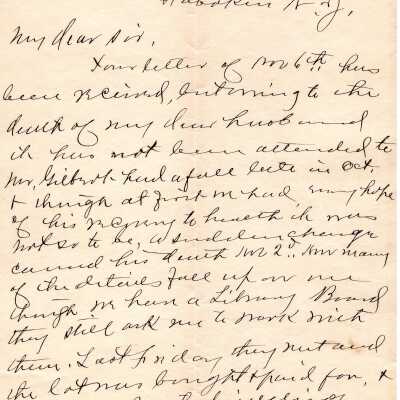 Hoboken N.J.
My dear Sir,
Your letter of Nov 6th has
been received, but owing to the
death of my dear husband
it has not been attended to
Mr. Gilbert had a fall late in Oct.
& though at first we had every hope
of his regaining to health it was
not so to be, a sudden change
caused his death Nov 2d. Now many
of the details fall up on me
though we have a Library Board
they still ask me to work with
them. Last Friday they met and
the lot was bought & paid for, &